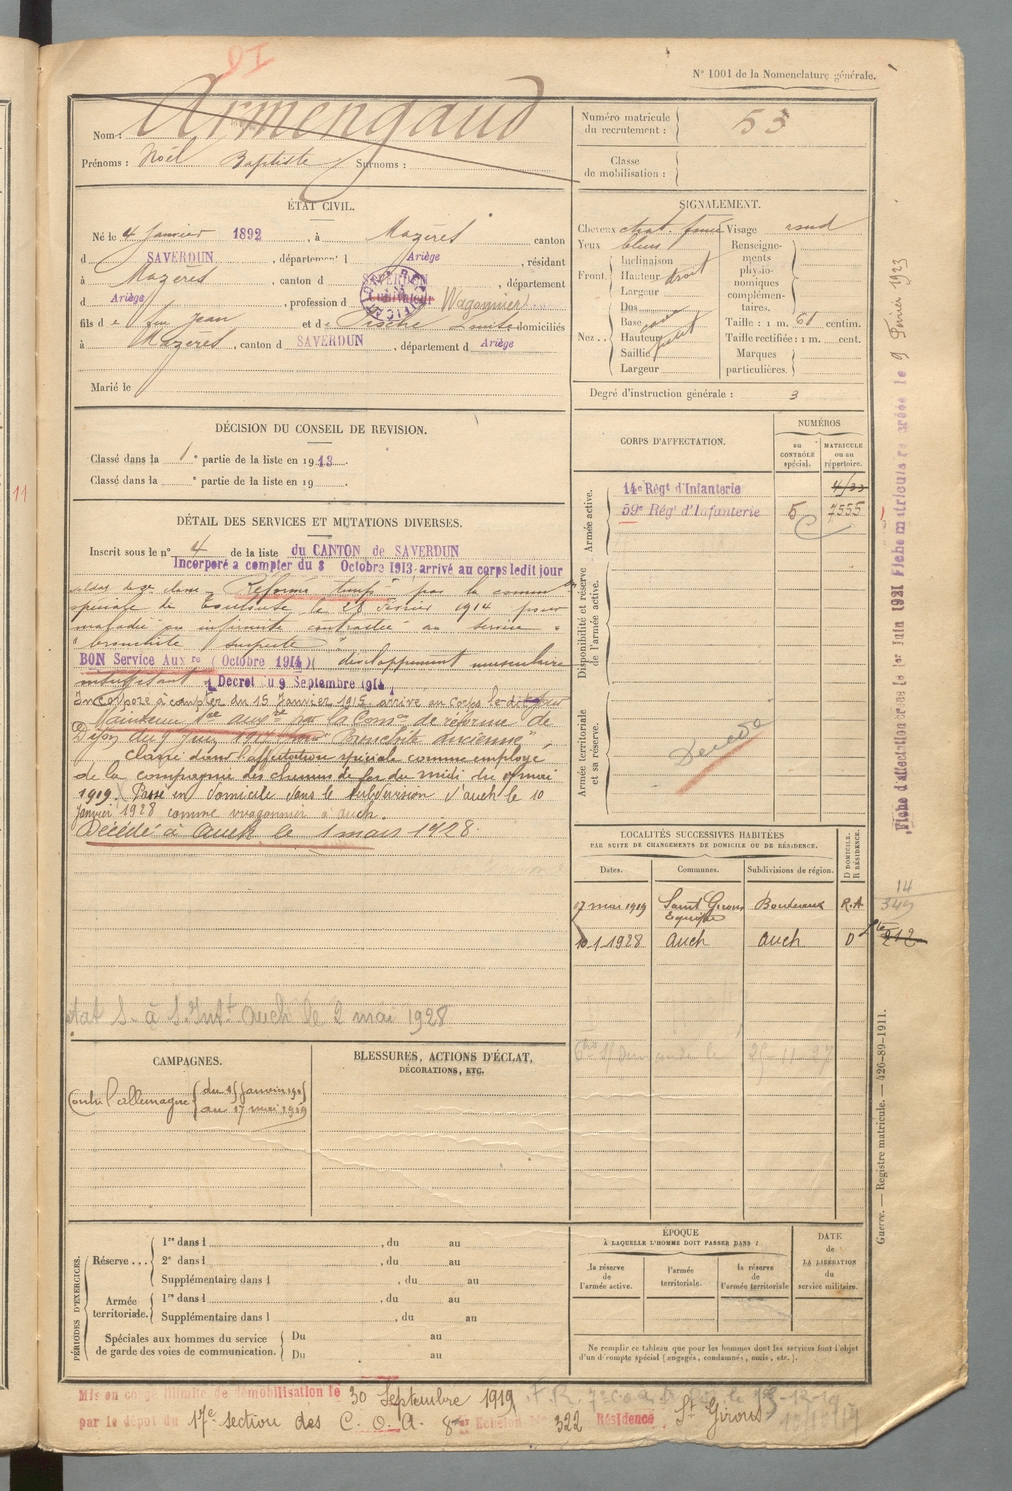 N° 1001 de la Nomenclature générale.
Nom : Armengaud
Prénoms : Noël Baptiste Surnoms :
Numéro matricule du recrutement : 53
Classe de mobilisation :
ÉTAT CIVIL.
Né le 4 Janvier 1892, à Mazères canton
d SAVERDUN, département d Ariège, résidant
à Mazères, canton d SAVERDUN, département
d Ariège, profession d Cultivateur Wagonnier
fils de feu Jean et de Louise domiciliés
à Mazères, canton d SAVERDUN, département d Ariège
Marié le
SIGNALEMENT.
Cheveux chat. foncé Visage rond
Yeux bleus
Front. Inclinaison
Hauteur droit
Largeur
Nez.. Dos
Base
Hauteur
Saillie
Largeur
Renseignements physionomiques complémentaires.
Taille : 1 m. 61 centim.
Taille rectifiée : 1 m. cent.
Marques particulières.
Degré d'instruction générale : 3
DÉCISION DU CONSEIL DE REVISION.
Classé dans la 1e partie de la liste en 1913.
Classé dans la e partie de la liste en 19
DÉTAIL DES SERVICES ET MUTATIONS DIVERSES.
Inscrit sous le n° 4 de la liste du CANTON de SAVERDUN
Incorporé a compter du 8 Octobre 1913 arrivé au corps ledit jour
soldat de 2e classe. Réformé temp. par la comm
spéciale de Toulouse le 28 Février 1914 pour
maladie ou infirmité contractée au service
"bronchite suspecte"
BON Service Auxre (Octobre 1914) développement musculaire
insuffisant Decret du 9 Septembre 1914
Incorporé à compter du 15 Janvier 1915 arrivé au corps le dit jour
Maintenu sce auxre par la Comon de réforme de
Dijon du 9 Juin 1917 pour "Bronchite ancienne"
Classé dans l'affectation spéciale comme employé
de la compagnie des chemins de fer du midi du 17 mai
1919. Passé en domicile dans la subdivision d'auch le 10
Janvier 1928 comme wagonnier à auch.
Décédé à Auch le 1 mars 1928.
à S. Intt Auch le 2 mai 1928
CORPS D'AFFECTATION.
NUMÉROS
au CONTRÔLE spécial.
MATRICULE ou au répertoire.
Armée active.
14e Régt d'Infanterie
59e Régt d'Infanterie 5 7555
Disponibilité et réserve de l'armée active.
Armée territoriale et sa réserve.
Décédé
LOCALITÉS SUCCESSIVES HABITÉES
PAR SUITE DE CHANGEMENTS DE DOMICILE OU DE RÉSIDENCE.
Dates. Communes. Subdivisions de région. D DOMICILE. R RÉSIDENCE.
17 mai 1919 Saint Girons Bordeaux R.A
10-1-1928 Auch Auch D
14
349
212
CAMPAGNES.
Contre l'allemagne du 15 Janvier 1915
au 17 mai 1919
BLESSURES, ACTIONS D'ÉCLAT,
DÉCORATIONS, ETC.
PÉRIODES D'EXERCICES.
Réserve... 1re dans l , du au
2e dans l , du au
Supplémentaire dans l , du au
Armée territoriale. 1re dans l , du au
Supplémentaire dans l , du au
Spéciales aux hommes du service de garde des voies de communication. Du au
Du au
ÉPOQUE
À LAQUELLE L'HOMME DOIT PASSER DANS :
la réserve de l'armée active.
l'armée territoriale.
la réserve de l'armée territoriale
DATE de LA LIBÉRATION du service militaire.
Ne remplir ce tableau que pour les hommes dont les services font l'objet
d'un décompte spécial (engagés, condamnés, omis, etc.).
Mis en congé illimité de démobilisation le 30 Septembre 1919
par le dépôt du 17e section des C. O. A. 8e Echelon N° 322 Résidence St Girons
Fiche d'affectation créée le 1er Juin 1921 Fiche matricule re créée le 9 Février 1923
Guerre. — Registre matricule. — 426-89-1911.
11